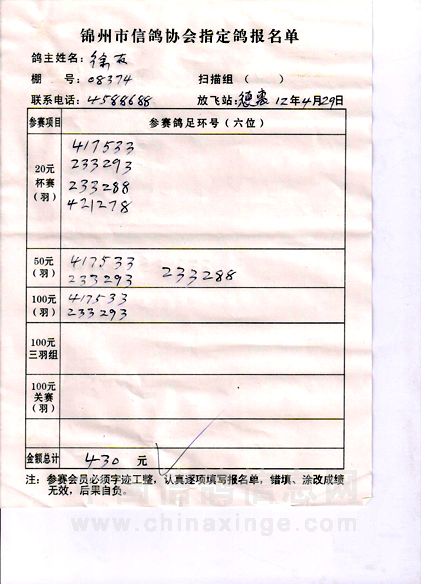 锦州市信鸽协会指定鸽报名单
鸽主姓名：徐
棚 号：08374 扫描组（ ）
联系电话：4588688 放飞站：德惠 12年4月29日
参赛项目 参赛鸽足环号（六位）
20元杯赛（羽）
417533
233293
233288
421278
50元（羽）
417533 233288
233293
100元（羽）
417533
233293
100元三羽组
100元关赛（羽）
金额总计 430 元
注：参赛会员必须字迹工整，认真逐项填写报名单，错填、涂改成绩
无效，后果自负。
中国信鸽信息网
www.chinaxinge.com